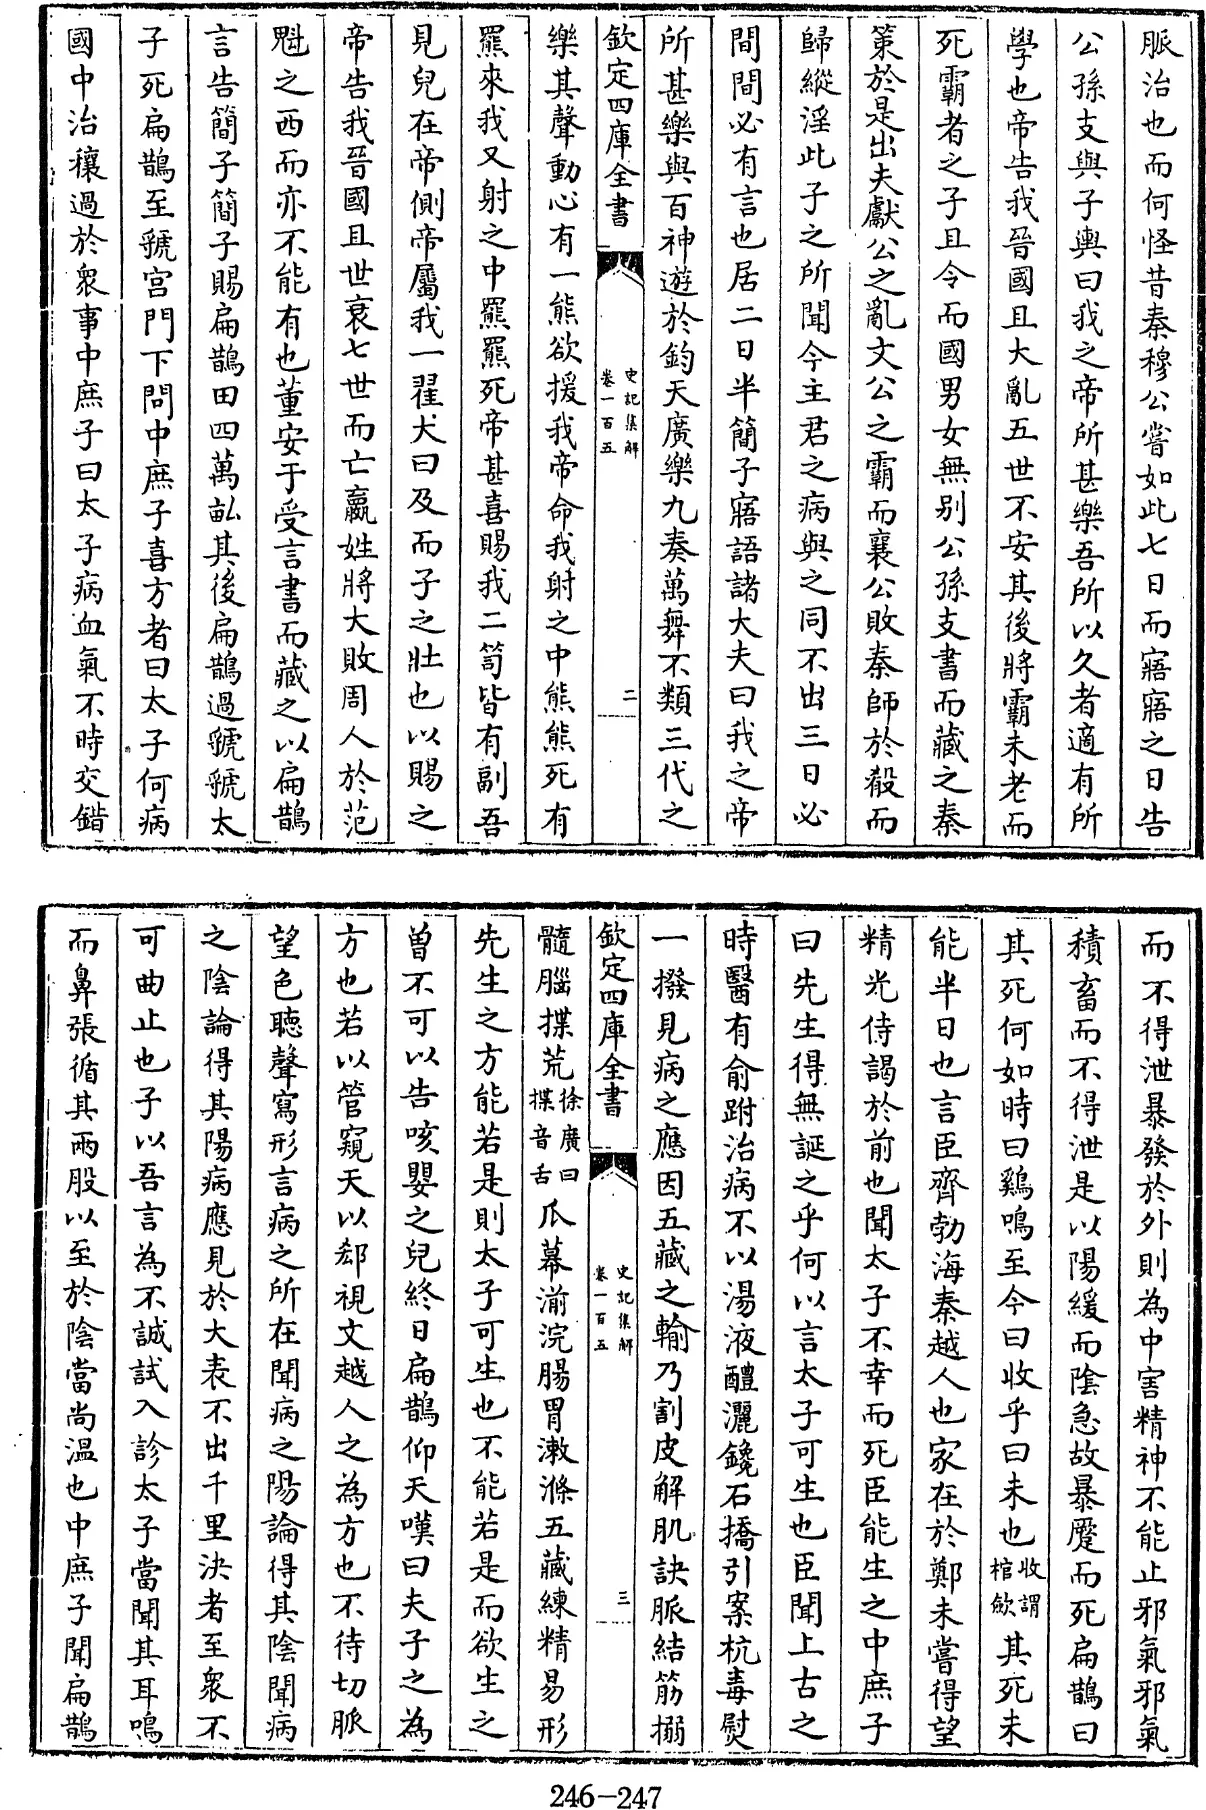 脈治也而何怪昔秦穆公嘗如此七日而寤寤之日告
公孫支與子輿曰我之帝所甚樂吾所以久者適有所
學也帝告我晉國且大亂五世不安其後將霸未老而
死霸者之子且令而國男女無别公孫支書而藏之秦
策於是出夫獻公之亂文公之霸而襄公敗秦師於殽而
歸縱淫此子之所聞今主君之病與之同不出三日必
間間必有言也居二日半簡子寤語諸大夫曰我之帝
所甚樂與百神遊於鈞天廣樂九奏萬舞不類三代之
欽定四庫全書
史記集解
卷一百五
二
樂其聲動心有一熊欲援我帝命我射之中熊熊死有
羆來我又射之中羆羆死帝甚喜賜我二笥皆有副吾
見兒在帝側帝屬我一翟犬曰及而子之壯也以賜之
帝告我晉國且世衰七世而亡嬴姓將大敗周人於范
魁之西而亦不能有也董安于受言書而藏之以扁鵲
言告簡子簡子賜扁鵲田四萬畝其後扁鵲過虢虢太
子死扁鵲至虢宫門下問中庶子喜方者曰太子何病
國中治穰過於衆事中庶子曰太子病血氣不時交錯
而不得泄暴發於外則為中害精神不能止邪氣邪氣
積畜而不得泄是以陽緩而陰急故暴蹷而死扁鵲曰
其死何如時曰鷄鳴至今曰收乎曰未也收謂棺歛其死未
能半日也言臣齊勃海秦越人也家在於鄭未嘗得望
精光侍謁於前也聞太子不幸而死臣能生之中庶子
曰先生得無誕之乎何以言太子可生也臣聞上古之
時醫有俞跗治病不以湯液醴灑鑱石撟引案杭毒熨
一撥見病之應因五藏之輸乃割皮解肌訣脈結筋搦
欽定四庫全書
史記集解
卷一百五
三
髓腦揲荒徐廣曰揲音舌爪幕湔浣腸胃漱滌五藏練精易形
先生之方能若是則太子可生也不能若是而欲生之
曾不可以告咳嬰之兒終日扁鵲仰天嘆曰夫子之為
方也若以管窺天以郄視文越人之為方也不待切脈
望色聽聲寫形言病之所在聞病之陽論得其陰聞病
之陰論得其陽病應見於大表不出千里決者至衆不
可曲止也子以吾言為不誠試入診太子當聞其耳鳴
而鼻張循其兩股以至於陰當尚溫也中庶子聞扁鵲
246-247